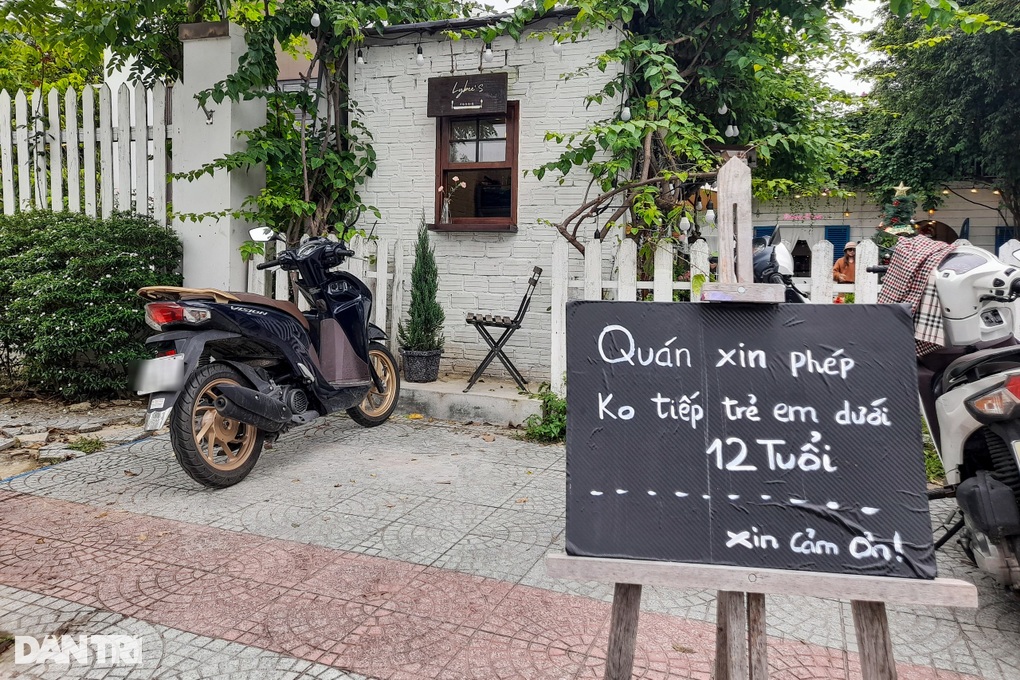 Lybu's
VISION
Quán xin phép
Ko tiếp trẻ em dưới
12 Tuổi
xin cảm ơn!
DANTRI